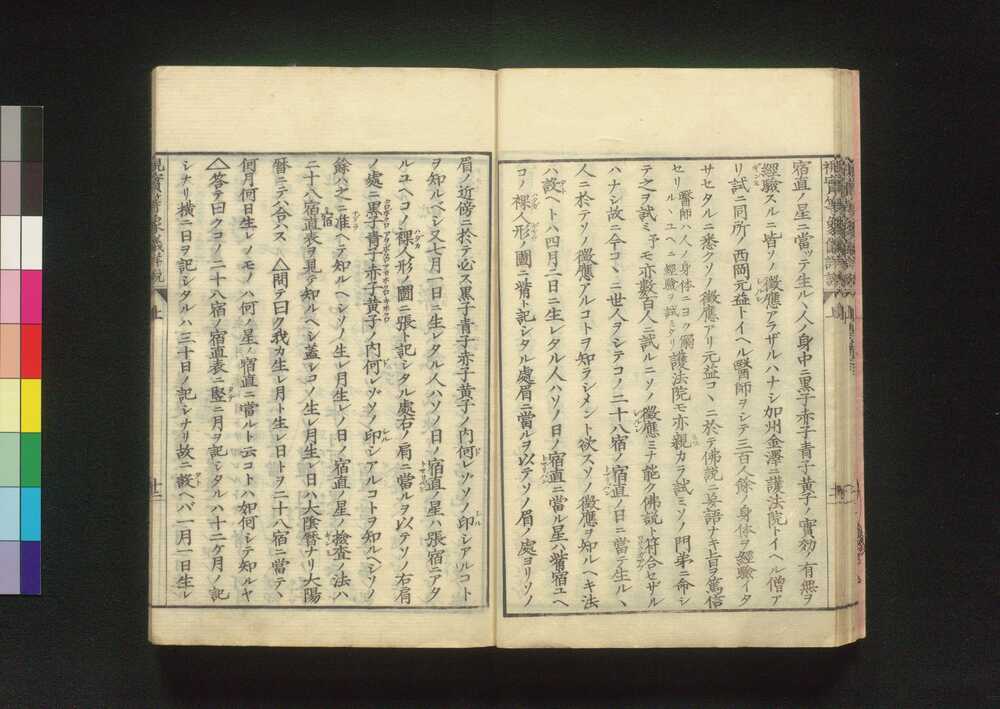 宿直ノ星ニ當ッテ生ルヽ人ノ身中ニ黒子赤子青子黄子ノ實効ノ有無ヲ
經驗スルニ皆ソノ徴應アラザルハナシ加州金澤ニ護法院トイヘル僧ア
リ試ニ同所ノ西岡元益トイヘル醫師ヲシテ三百人餘ノ身体ヲ經驗イタ
サセタルニ悉クソノ徴應アリ元益コヽニ於テ佛説ニ妄語ナキ旨ヲ篤信
セリ 醫師ハ人ノ身体ニヨク觸ルヽユヘニ經驗ヲ試ミタリ 護法院モ亦親カラ試ミソノ門弟ニ命シ
テ之ヲ試ミ予モ亦數百人ニ試ルニソノ徴應ミナ能ク佛説ト符合セザル
ハナシ故ニ今コヽニ世人ヲシテコノ二十八宿ノ宿直ノ日ニ當テ生ルヽ
人ニ於テソノ徴應アルコトヲ知ラシメント欲スソノ徴應ヲ知ルヘキ法
ハ設ヘトハ四月二日ニ生レタル人ハソノ日ノ宿直ニ當ル星ハ觜宿ユヘ
コノ裸人形ノ圖ニ觜ト記シタル處眉ニ當ルヲ以テソノ眉ノ處ヨリソノ
眉ノ近傍ニ於テ必ス黒子青子赤子黄子ノ内何レゾソノ印シアルコト
ヲ知ルベシ又七月一日ニ生レタル人ハソノ日ノ宿直ノ星ハ張宿ニアタ
ルユヘコノ裸人形ノ圖ニ張ト記シタル處右ノ肩ニ當ルヲ以テソノ右肩
ノ處ニ黒子青子赤子黄子ノ内何レゾソノ印シアルコトヲ知ルヘシソノ
餘ハ之ニ准ヘテ知ルヘシソノ生レ月生レノ日ノ宿直ノ星ノ檢査ノ法ハ
二十八宿宿直表ヲ見テ知ルヘシ蓋シコノ生レ月生レ日ハ大陰暦ナリ大陽
暦ニテハ合ハス △問テ曰ク我カ生レ月ト生レ日トヲ二十八宿ニ當テヽ
何月何日生レノモノハ何ノ星ノ宿直ニ當ルト云コトハ如何シテ知ルヤ
△答テ曰クコノ二十八宿ノ宿直表ニ竪ニ月ヲ記シタルハ十二ケ月ノ記
シナリ横ニ日ヲ記シタルハ三十日ノ記シナリ故ニ設ヘバ一月一日生レ
上
十二